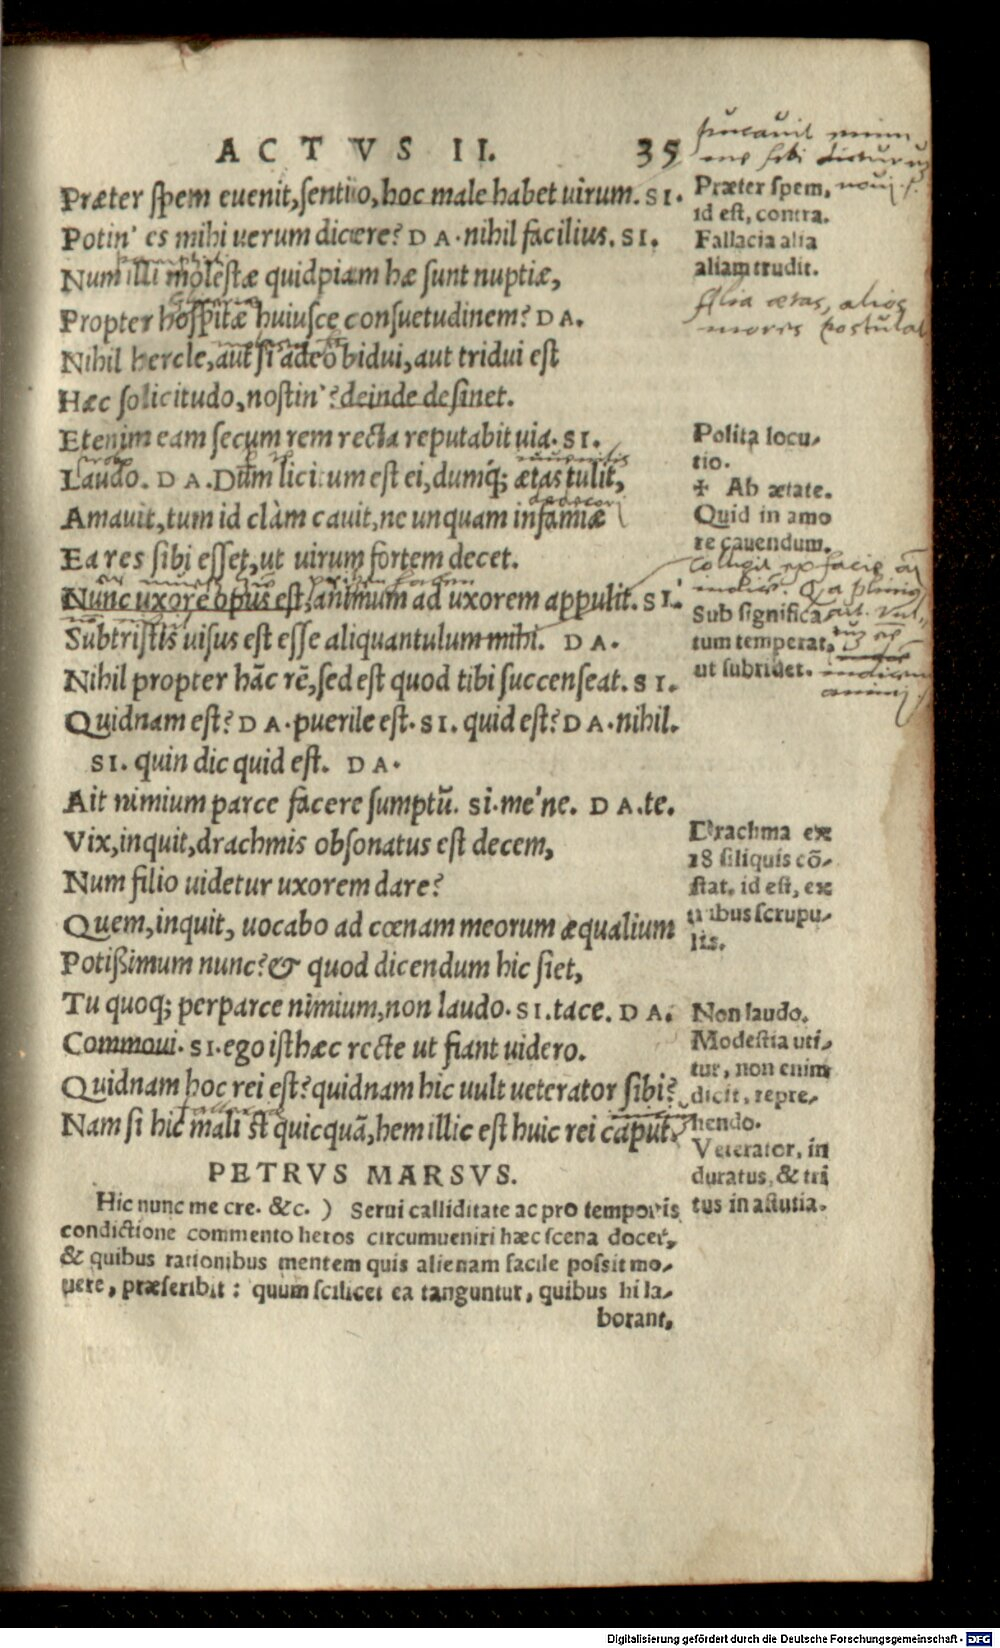 ACTVS II. 35
Præter spem euenit, sentio, hoc male habet uirum. SI.
Potin' es mihi uerum dicere? DA. nihil facilius. SI.
Num illi molestæ quidpiam hæ sunt nuptiæ,
Propter hospitæ huiusce consuetudinem? DA.
Nihil hercle, aut si adeo bidui, aut tridui est
Hæc solicitudo, nostin'? deinde desinet.
Etenim eam secum rem recta reputabit uia. SI.
Laudo. DA. Dum licitum est ei, dumq; ætas tulit,
Amauit, tum id clàm cauit, ne unquam infamiæ
Ea res sibi esset, ut uirum fortem decet.
Nunc uxore opus est, animum ad uxorem appulit. SI.
Subtristis uisus est esse aliquantulum mihi. DA.
Nihil propter hãc rẽ, sed est quod tibi succenseat. SI.
Quidnam est? DA. puerile est. SI. quid est? DA. nihil.
SI. quin dic quid est. DA.
Ait nimium parce facere sumptũ. SI. me'ne. DA. te.
Vix, inquit, drachmis obsonatus est decem,
Num filio uidetur uxorem dare?
Quem, inquit, uocabo ad cœnam meorum æqualium
Potißimum nunc? & quod dicendum hic siet,
Tu quoq; perparce nimium, non laudo. SI. tace. DA.
Commoui. SI. ego isthæc recte ut fiant uidero.
Quidnam hoc rei est? quidnam hic uult ueterator sibi?
Nam si hic mali st quicquã, hem illic est huic rei caput.
PETRVS MARSVS.
Hic nunc me cre. &c. ) Serui calliditate ac pro temporis
condictione commento heros circumueniri hæc scena docet,
& quibus rationibus mentem quis alienam facile possit mo-
uere, præscribit: quum scilicet ea tanguntur, quibus hi la-
borant,
Præter spem,
id est, contra.
Fallacia alia
aliam trudit.
Alia ætas, alios
mores postulat
Polita locu-
tio.
✠ Ab ætate.
Quid in amo
re cauendum.
Sub significa
tum temperat.
ut subridet.
Drachma ex
18 siliquis cõ-
stat. id est, ex
tribus scrupu-
lis.
Non laudo.
Modestia uti-
tur, non enim
dicit, repre-
hendo.
Veterator, in
duratus, & tri
tus in astutia.
Digitalisierung gefördert durch die Deutsche Forschungsgemeinschaft - DFG